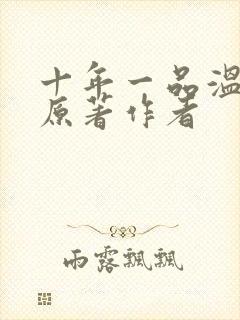 十年一品温
原著作者
雨露飘飘